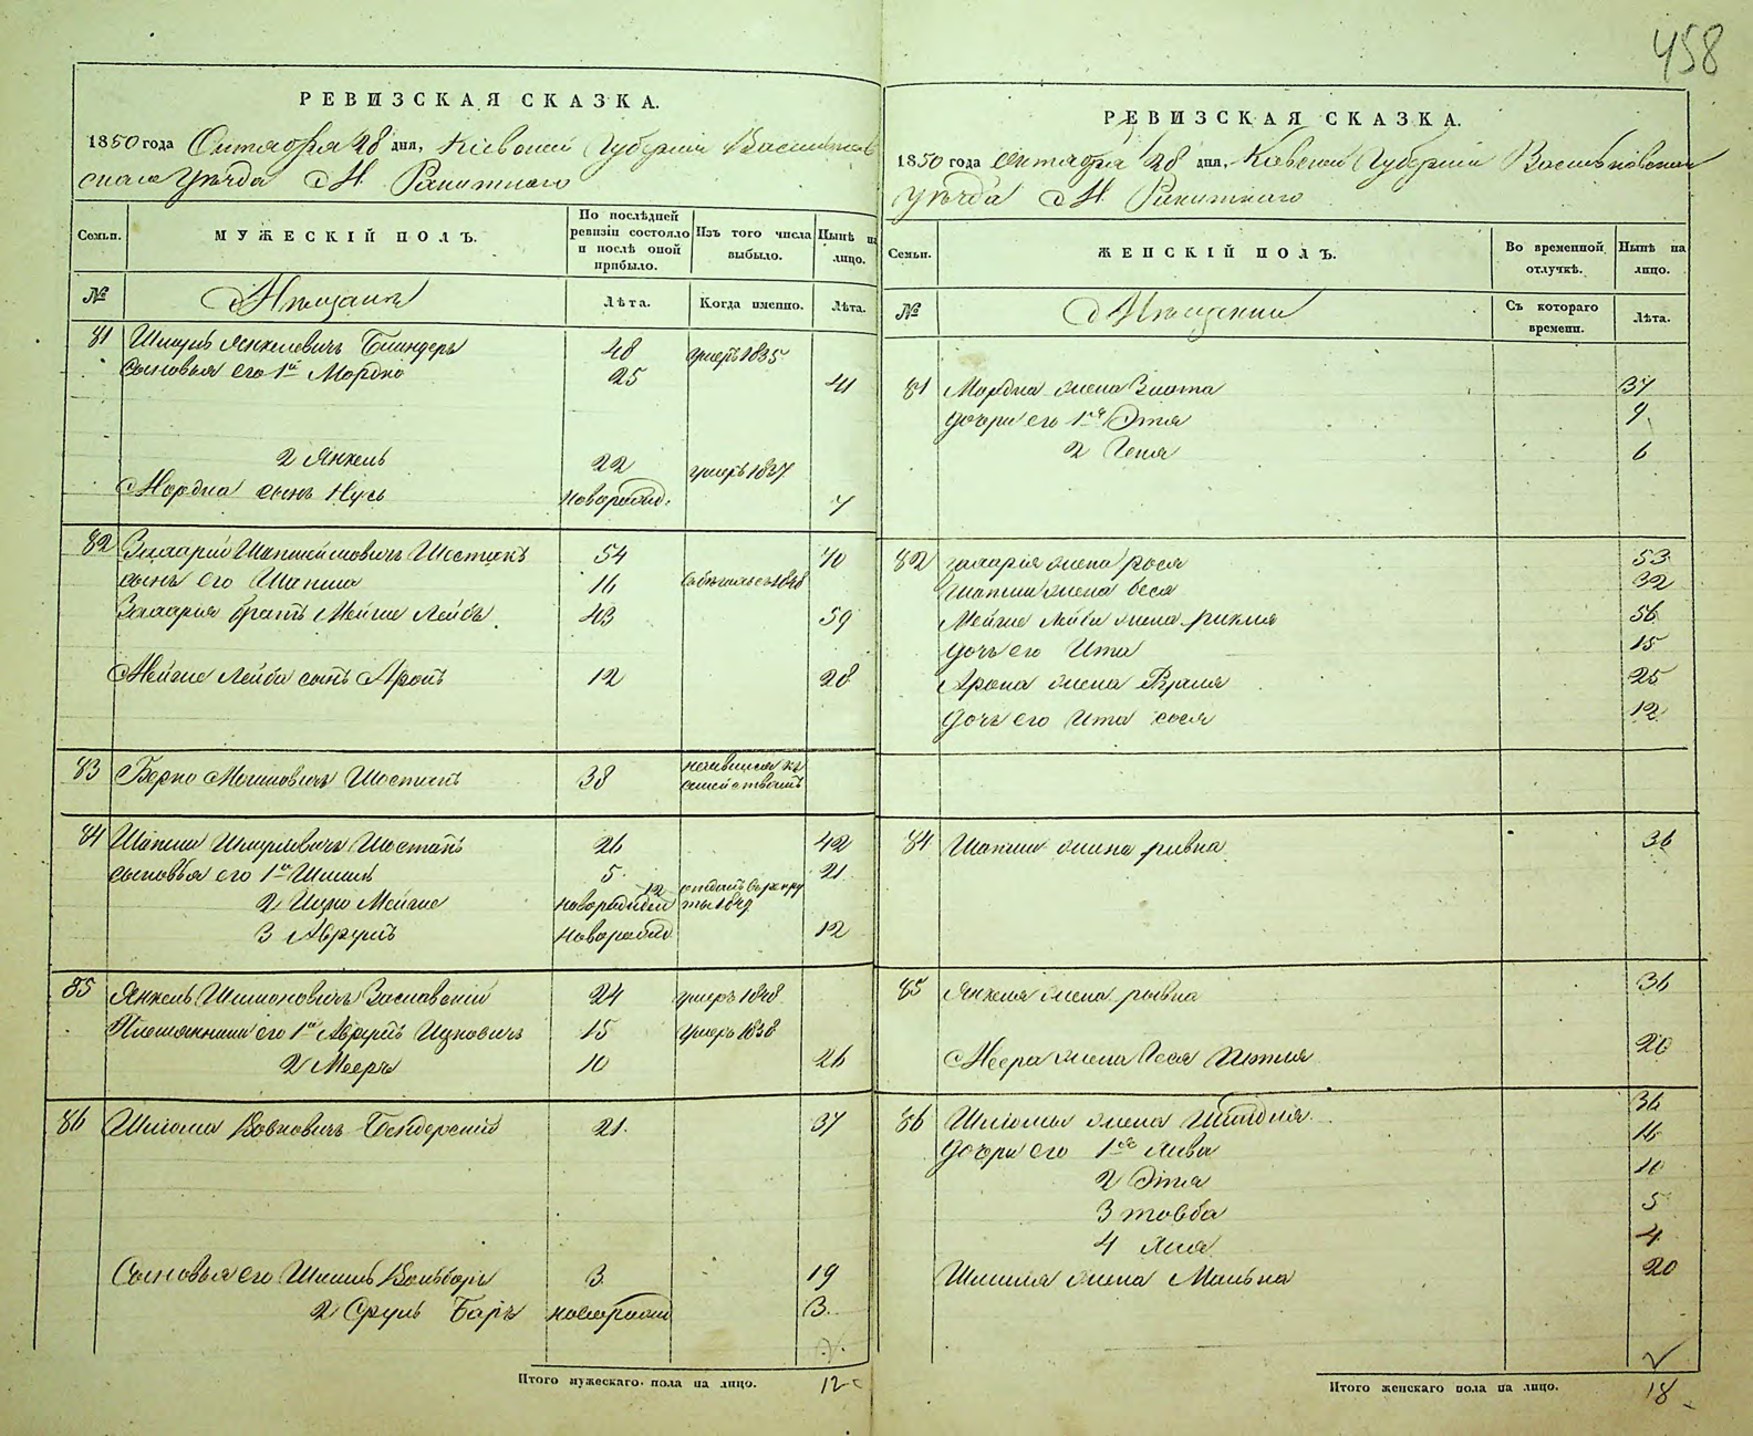 458
РЕВИЗСКАЯ СКАЗКА.
1850 года Октября 28 дня, Кіевской Губерніи Васильков
скаго Уѣзда М. Ракитнаго
Семьи.
МУЖЕСКІЙ ПОЛЪ.
По послѣдней
ревизіи состояло
и послѣ оной
прибыло.
Изъ того числа
выбыло.
Нынѣ на
лицо.
№
Мѣщане
Лѣта.
Когда именно.
Лѣта.
81 Янкелевичъ 48 умеръ 1835
сыновья его 1й Мордко 25 41
2 Янкель 22 умеръ 1837
Мордка сынъ Нусь новорожд. 7
82 Шестакъ 54 70
сынъ его Шапша 16 1848
братъ Мейше Лейбъ 43 59
Мейше Лейба сынъ Аронъ 12 28
83 Берко Мошковичъ Шостакъ 38
84 Шапша Шостакъ 26 42
сыновья его 1й 5 21
2 Ицко Мейше 12 отданъ въ рекру
ты 1849
3 Аврумъ новорожд 12
85 Янкель Заславскій 24 умеръ 1848
Племянники его 1й Аврумъ Ицковичъ 15 умеръ 1838
2 Мееръ 10 26
86 Шліома Вовковичъ Бендерскій 21. 37
Сыновья его 3 19
2 Сруль Беръ новорожд 3.
Итого мужескаго пола на лицо. 12
РЕВИЗСКАЯ СКАЗКА.
1850 года Октября 28 дня, Кіевской Губерніи Васильковскаго
Уѣзда М. Ракитнаго
Семьи.
ЖЕНСКІЙ ПОЛЪ.
Во временной
отлучкѣ.
Нынѣ на
лицо.
№
Мѣщанки
Съ котораго
времени.
Лѣта.
81 Мордка жена Злота 37
дочери его 1я Этя 9
2 Геня 6
82 жена рося 53
Шапши жена бася 32
Мейше Лейби жена рикля 56
дочь его Ита 15
Арона жена 25
дочь его Ита сося 12
84 Шапши жена ривка 36
85 Янкеля жена рывка 36
Меера жена 20
86 Шліомы жена 36
дочери его 1я 16
2 Этя 10
3 товба 5
4 4
жена Малька 20
Итого женскаго пола на лицо. 18